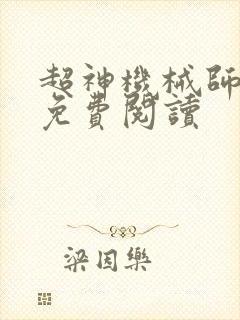 超神機械師
免費閱讀
梁因樂